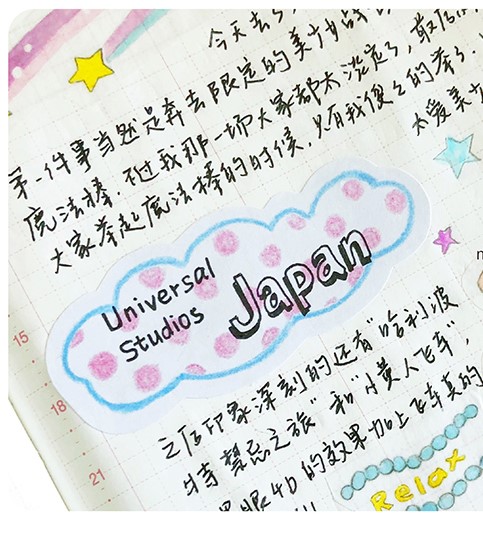 今天去了
第一件事当然是奔去限定的美少女战
魔法棒.不过我那一场大家都太淡定了,最后
大家举起魔法棒的时候,只有我傻々的举了.
太爱美少
Universal
Studios
Japan
15
18
21
之后印象深刻的还有"哈利波
特禁忌之旅"和"小黄人飞车",
眼4D的效果加上飞车真的
Relax